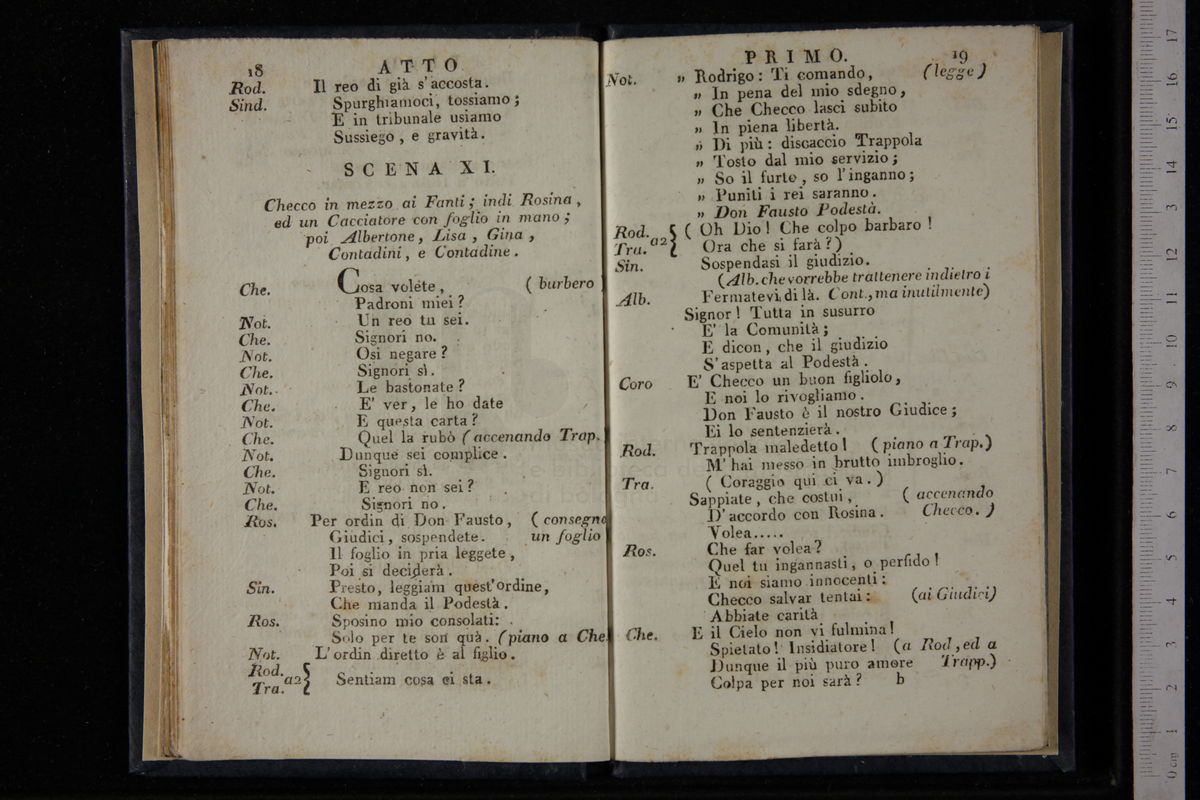 18 ATTO
Rod. Il reo di già s'accosta.
Sind. Spurghiamoci, tossiamo;
E in tribunale usiamo
Sussiego, e gravità.
SCENA XI.
Checco in mezzo ai Fanti; indi Rosina,
ed un Cacciatore con foglio in mano;
poi Albertone, Lisa, Gina,
Contadini, e Contadine.
Che. Cosa volete, (burbero)
Padroni miei?
Not. Un reo tu sei.
Che. Signori no.
Not. Osi negare?
Che. Signori sì.
Not. Le bastonate?
Che. E' ver, le ho date
Not. E questa carta?
Che. Quel la rubò (accenando Trap.)
Not. Dunque sei complice.
Che. Signori sì.
Not. E reo non sei?
Che. Signori no.
Ros. Per ordin di Don Fausto, (consegna
Giudici, sospendete. un foglio)
Il foglio in pria leggete,
Poi si deciderà.
Sin. Presto, leggiam quest'ordine,
Che manda il Podestà.
Ros. Sposino mio consolati:
Solo per te son quà. (piano a Che.
Not. L'ordin diretto è al figlio.
Rod.
Tra. a2 Sentiam cosa ci sta.
PRIMO. 19
Not. „ Rodrigo: Ti comando, (legge)
„ In pena del mio sdegno,
„ Che Checco lasci subito
„ In piena libertà.
„ Di più: discaccio Trappola
„ Tosto dal mio servizio;
„ So il furto, so l'inganno;
„ Puniti i rei saranno.
„ Don Fausto Podestà.
Rod. ( Oh Dio! Che colpo barbaro!
Tra. a2 Ora che si farà?)
Sin. Sospendasi il giudizio.
(Alb. che vorrebbe trattenere indietro i
Alb. Fermatevi di là. Cont., ma inutilmente)
Signor! Tutta in susurro
E' la Comunità;
E dicon, che il giudizio
S'aspetta al Podestà.
Coro E' Checco un buon figliolo,
E noi lo rivogliamo.
Don Fausto è il nostro Giudice;
Ei lo sentenzierà.
Rod. Trappola maledetto! (piano a Trap.)
M'hai messo in brutto imbroglio.
Tra. ( Coraggio qui ci va. )
Sappiate, che costui, ( accenando
D'accordo con Rosina. Checco. )
Volea.....
Ros. Che far volea?
Quel tu ingannasti, o perfido!
E noi siamo innocenti:
Checco salvar tentai: (ai Giudici)
Abbiate carità
Che. E il Cielo non vi fulmina!
Spietato! Insidiatore! (a Rod, ed a
Dunque il più puro amore Trapp.)
Colpa per noi sarà? b